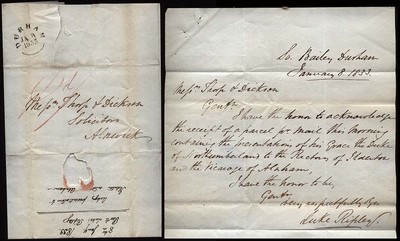 DURHAM
1833
Messrs Thorp & Dickson
Solicitors
Alnwick
8th Jany 1833
So. Bailey Durham
January 8. 1833.
Messrs Thorp & Dickson
Gentn
I have the honor to acknowledge
the receipt of a parcel pr Mail this Morning
containing the Presentations of his Grace the Duke
of Northumberland to the Rectory of
and the Vicarage of Alnham,
I have the honor to be,
Gentn
very respectfully Yrs
Luke Ripley